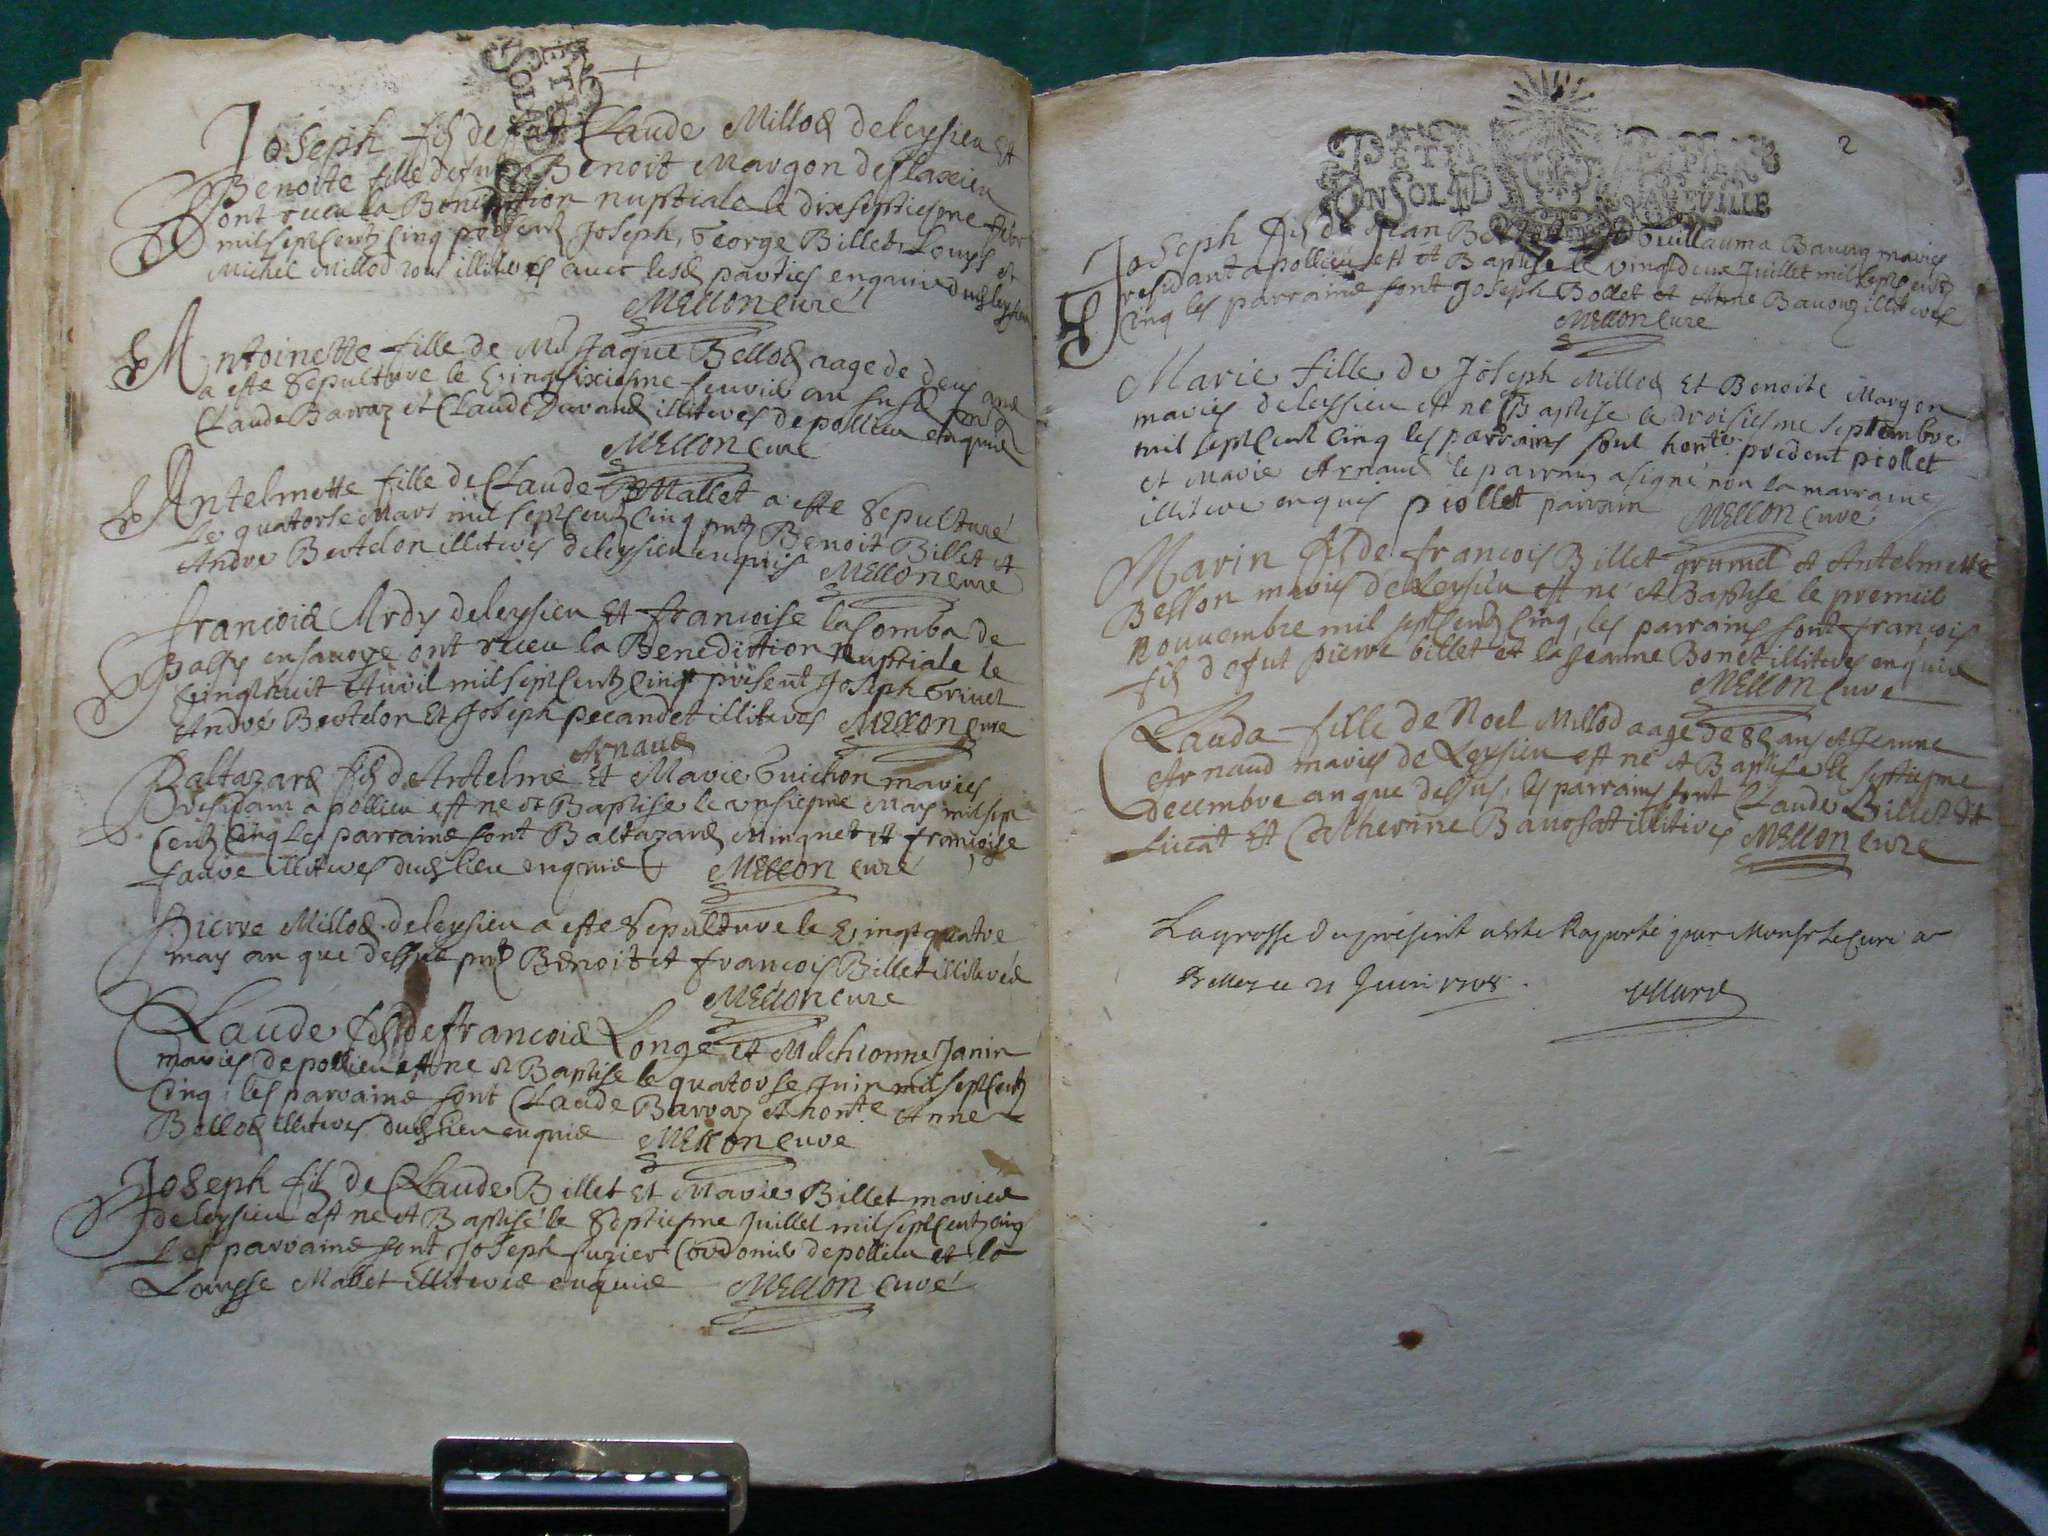 Joseph fils de feu Claude Millod de leysieu et
Benoite fille de fut Benoit Margon de flaxieu
ont receu la Benediction nuptiale le dixseptiesme febr
mil sept centz cinq present Joseph, George Billet, Louys et
Michel Millod tous illiteres avec lesd parties enquis dud leysieu
MELLON Curé
Antoinette fille de Me Jaque Bellod aage de deux ans
a este sepulture le vingtsixiesme an susd
Claude Barraz et Claude Durand illiteres de pollieu enquis
MELLON Curé
Antelmette fille de Claude Mallet a este sepulturé
Le quatorse Mars mil sept centz cinq pntz Benoit Billet et
André Bertelon illiteres de leysieu enquis MELLON Curé
francois Ardy de leysieu et francoise la Comba de
en savoye ont receu la Benediction nuptiale le
vingthuit Avril mil sept centz cinq présent Joseph Trivet
André Bertelon Et Joseph pecandet illiteres MELLON Cure
Arnaud
Baltazard fils de Antelme Et Marie Guichon mariés
residant a pollieu est ne et Baptise le unsiesme Mars mil sept
centz cinq Les parrains sont Baltazard Minquet et francoise
faure illiteres dud lieu enquis MELLON Curé
Pierre Millod de leysieu a este sepulture le vingtquatre
may an que dessus pnt Benoit et francois Billet illiterés
MELLON Cure
Claude fils de francois Longe et Melchionne Janin
mariés de pollieu est ne et Baptise le quatorse Juin mil sept centz
Cinq, les parrains sont Claude Barraz et honte Anne
Bellod illiteres dud lieu enquis MELLON Cure
Joseph fils de Claude Billet Et Marie Billet maries
de leysieu est ne et Baptisé le septiesme Juillet mil sept centz cinq
Les parrains sont Joseph fuzier Cordonier de pollieu et la
Louysse Mallet illiteres enquis MELLON Curé
2
PETIT PAPIER
UN SOL 4 D
VALEVILLE
Joseph fils de Jean Guillauma Bavouz mariés
residant a pollieu est et Baptise le vingtdeux Juillet mil sept centz
Cinq les parrains sont Joseph Bollet et Anne Bavouz illiteres
MELLON Cure
Marie fille de Joseph Millod Et Benoite Margon
mariés de leysieu est ne Baptise le troisiesme septembre
mil sept centz cinq les parrains sont honte prudent piollet
et Marie Arnaud le parrain a signé non la marraine
illitere enquis piollet parrain MELLON Curé
Marin fils de francois Billet grumel et Antelmette
Bellon mariés de Leysieu est né et Baptisé le premier
Nouvembre mil sept centz cinq, les parrains sont francois
fils de fut pierre billet et la Jeanne Bonet illiteres enquis
MELLON Cure
Clauda fille de Noel Millod aage de ans et Jeanne
Arnaud mariés de Leysieu est né et Baptise le septiesme
decembre an que dessus, les parrains sont Claude Billet dit
Lucat Et Catherine Bavosat illiteres MELLON Cure
La grosse du présent a été Raporté par Monsr Le Curé a
Belley ce 21 Juin 1708.